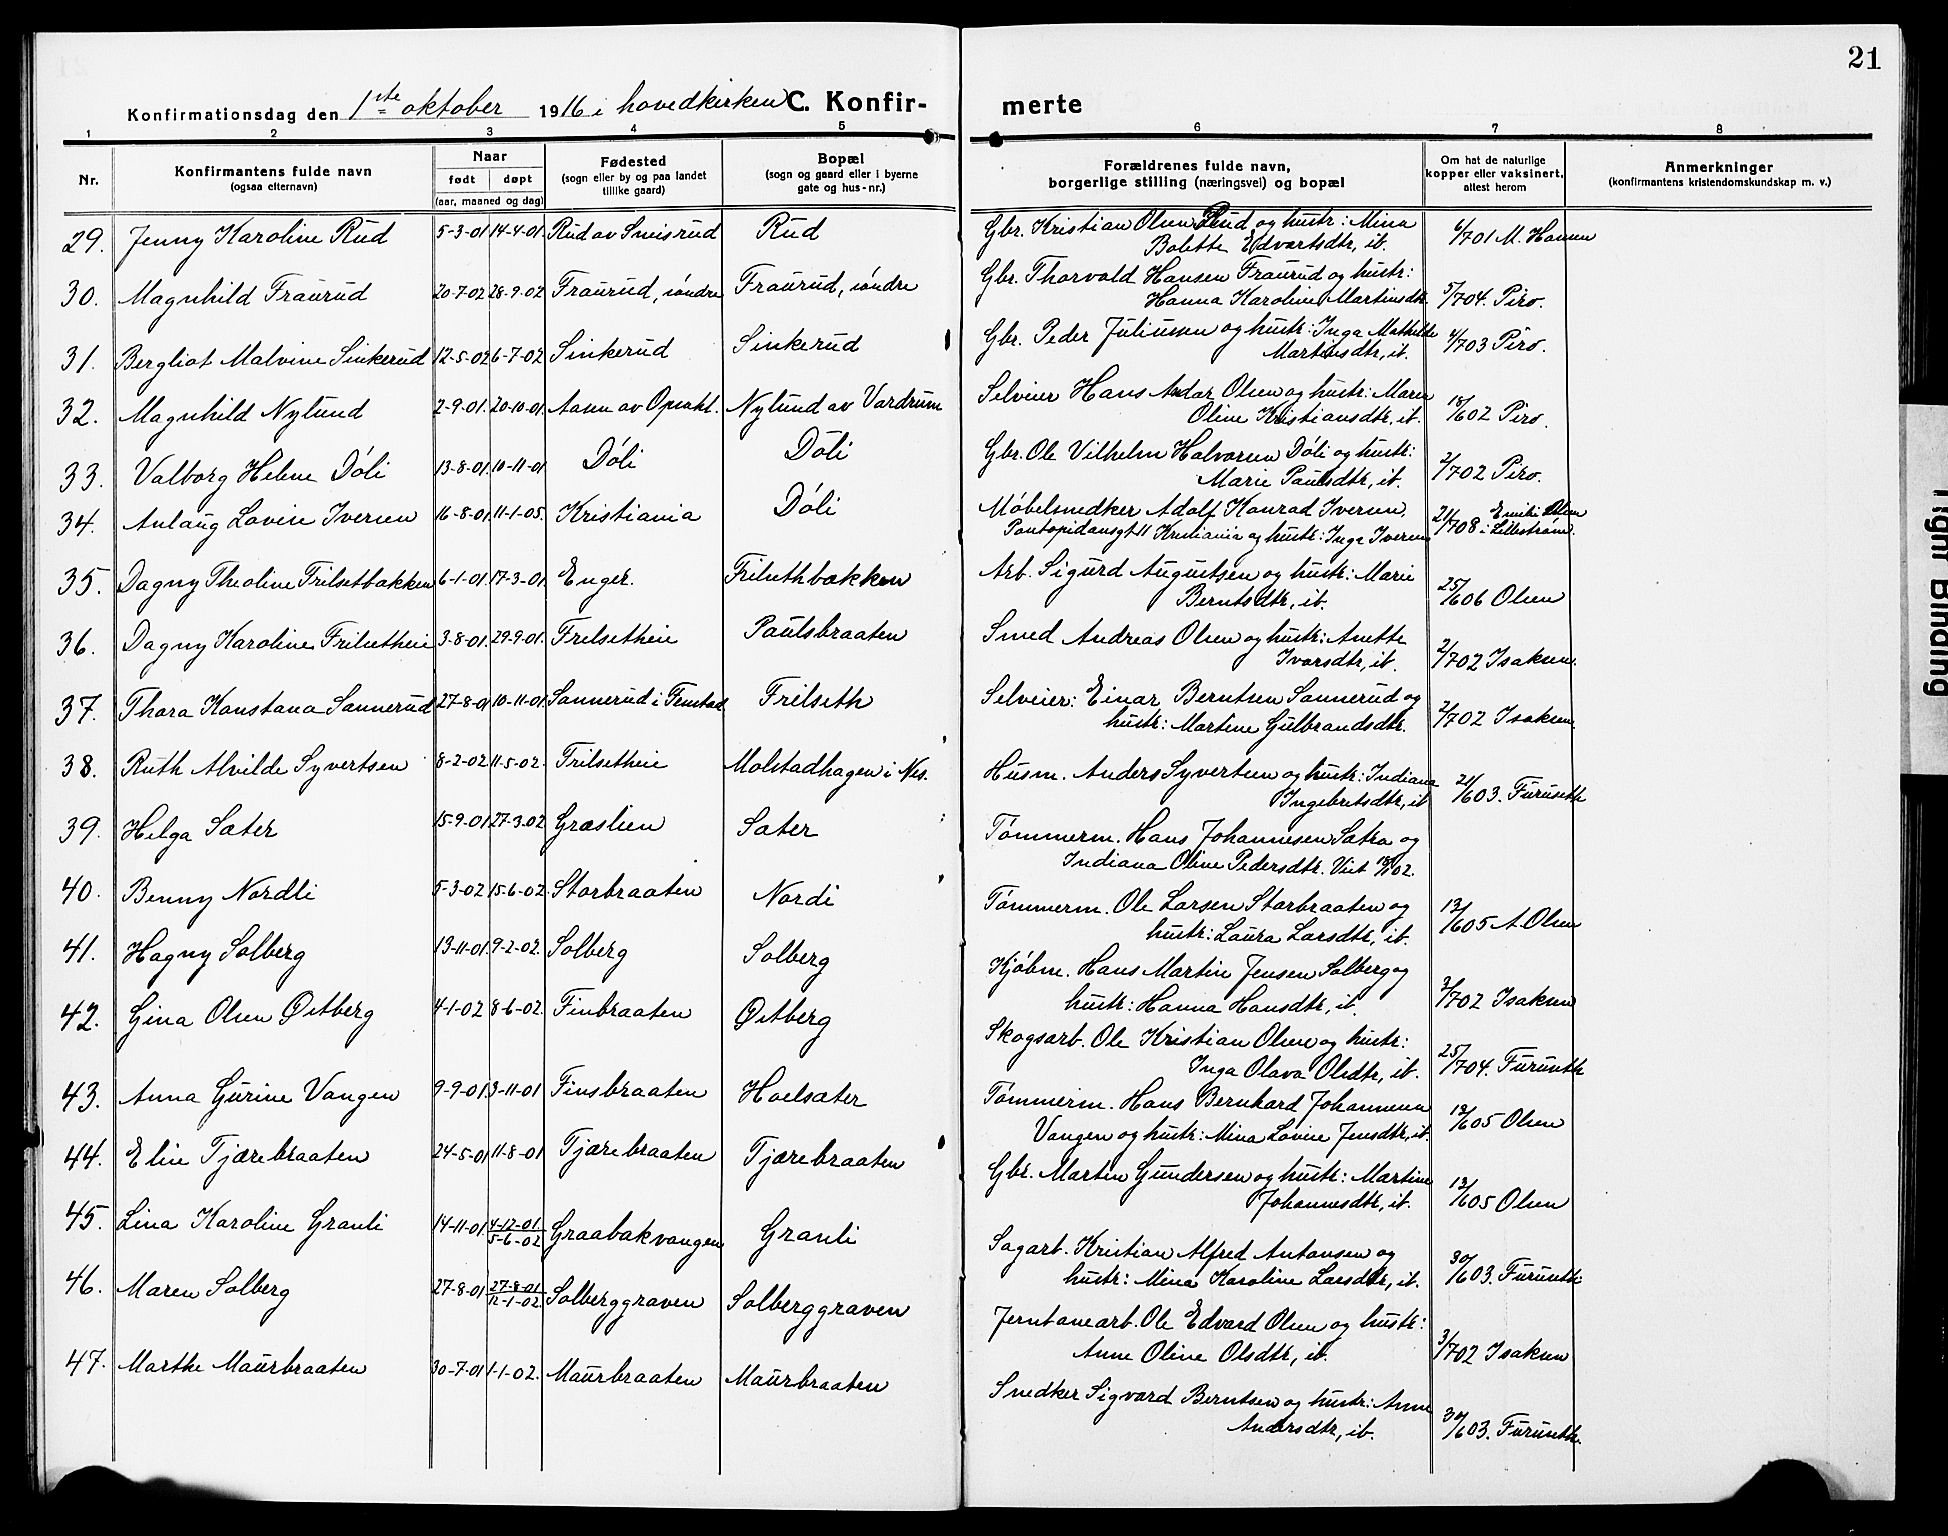 21
Konfirmationsdag den 1ste oktober 1916 i hovedkirken C. Konfir-
merte
1 2 3 4 5 6 7 8
Nr.
Konfirmantens fulde navn
(ogsaa efternavn)
Naar
født døpt
(aar, maaned og dag)
Fødested
(sogn eller by og paa landet
tillike gaard)
Bopæl
(sogn og gaard eller i byerne
gate og hus-nr.)
Forældrenes fulde navn,
borgerlige stilling (næringsvei) og bopæl
Om hat de naturlige
kopper eller vaksinert,
attest herom
Anmerkninger
(konfirmantens kristendomskundskap m. v.)
29. Jenny Karoline Rud 5-3-01 14-4-01. Rud av Sneisrud Rud
Gbr. Kristian Olsen Rud og hustr: Mina
Bolette Edvartsdtr, ib. 6/7 01 M. Hansen
30. Magnhild Fraurud 20-7-02 28-9-02 Fraurud, søndre Fraurud, søndre
Gbr. Thorvald Hansen Fraurud og hustr:
Hanna Karoline Martinsdtr 5/7 04. Piro.
31. Bergliot Malvine Sinkerud 12-5-02 6-7-02 Sinkerud Sinkerud
Gbr. Peder Juliussen og hustr: Inga Mathilde
Martinsdtr, ib. 4/7 03 Piro.
32. Magnhild Nylund 2-9-01. 20-10-01. Aasen av Opsahl. Nylund av Vardrum
Selveier Hans Andor Olsen og hustr: Maren
Oline Kristiansdtr, ib. 18/6 02 Piro.
33. Valborg Helene Döli 13-8-01. 10-11-01 Döli Döli
Gbr. Ole Vilhelm Halvorsen Döli og hustr:
Marie Paulsdtr, ib. 2/7 02 Piro
34. Anlaug Lovise Iversen 16-8-01 11-1-05. Kristiania Döli
Møbelsnedker Adolf Konrad Iversen,
Pontopidansgt 11 Kristiania og hustr: Inga Iversen 21/7 08 Emil Olsen
i Lillestrøm.
35. Dagny Theoline Frilsetbakken 6-1-01. 17-3-01. Enger. Frilsethbakken
Arb. Sigurd Augustsen og hustr: Marie
Berntsdtr, ib. 25/6 06 Olsen
36. Dagny Karoline Frilsetheie 3-8-01. 29-9-01. Frelsetheie Paulsbraaten
Smed Andreas Olsen og hustr: Anette
Ivarsdtr, ib. 2/7 02 Isaksen.
37. Thora Konstana Sannerud 27-8-01 10-11-01 Sannerud i Fenstad Frilseth
Selveier: Einar Berntsen Sannerud og
hustr: Martine Gulbrandsdtr. 2/7 02 Isaksen.
38. Ruth Alvilde Syvertsen 8-2-02 11-5-02. Frilsetheie Molstadhagen i Nes.
Husm. Anders Syvertsen og hustr: Indiana
Ingebretsdtr, ib 21/6 03. Furuseth
39. Helga Sæter 15-9-01 27-3-02 Græslien Sæter
Tømmerm. Hans Johannesen Sætra og
Indiana Oline Pedersdtr. Viet 02.
40. Benny Nordli 5-3-02 15-6-02 Storbraaten Nordi
Tømmerm. Ole Larsen Storbraaten og
hustr: Laura Larsdtr, ib. 13/6 05 A. Olsen
41. Hagny Solberg 13-11-01. 9-2-02. Solberg Solberg
Kjøbm. Hans Martin Jensen Solberg og
hustr: Hanna Hansdtr, ib. 3/7 02 Isaksen
42. Gina Olsen Østberg 4-1-02 8-6-02. Finbraaten Østberg
Skogsarb. Ole Kristian Olsen og hustr:
Inga Olava Olsdtr, ib. 25/7 04. Furuseth
43. Anna Gurine Vangen 9-9-01. 3-11-01 Finsbraaten Hoelsæter
Tømmerm. Hans Bernhard Johannesen
Vangen og hustr: Mina Lovise Jensdtr, ib. 13/6 05 Olsen
44. Elise Tjærebraaten 24-5-01 11-8-01 Tjærebraaten Tjærebraaten
Gbr. Martin Gundersen og hustr: Martine
Johannesdtr, ib. 13/6 05 Olsen
45. Lina Karoline Granli 14-11-01. 4-12-01/5-6-02 Graabakvangen Granli
Sagarb. Kristian Alfred Antonsen og
hustr: Mina Karoline Larsdtr, ib. 30/6 03. Furuseth
46. Maren Solberg 27-8-01 27-8-01/12-1-02. Solberggraven Solberggraven
Jernbanearb. Ole Edvard Olsen og hustr:
Anne Oline Olsdtr, ib. 3/7 02 Isaksen
47. Marthe Maurbraaten 30-7-01 1-1-02. Maurbraaten Maurbraaten
Snedker Sigvard Berntsen og hustr: Anne
Andersdtr, ib. 30/6 03. Furuseth.
Tight Binding